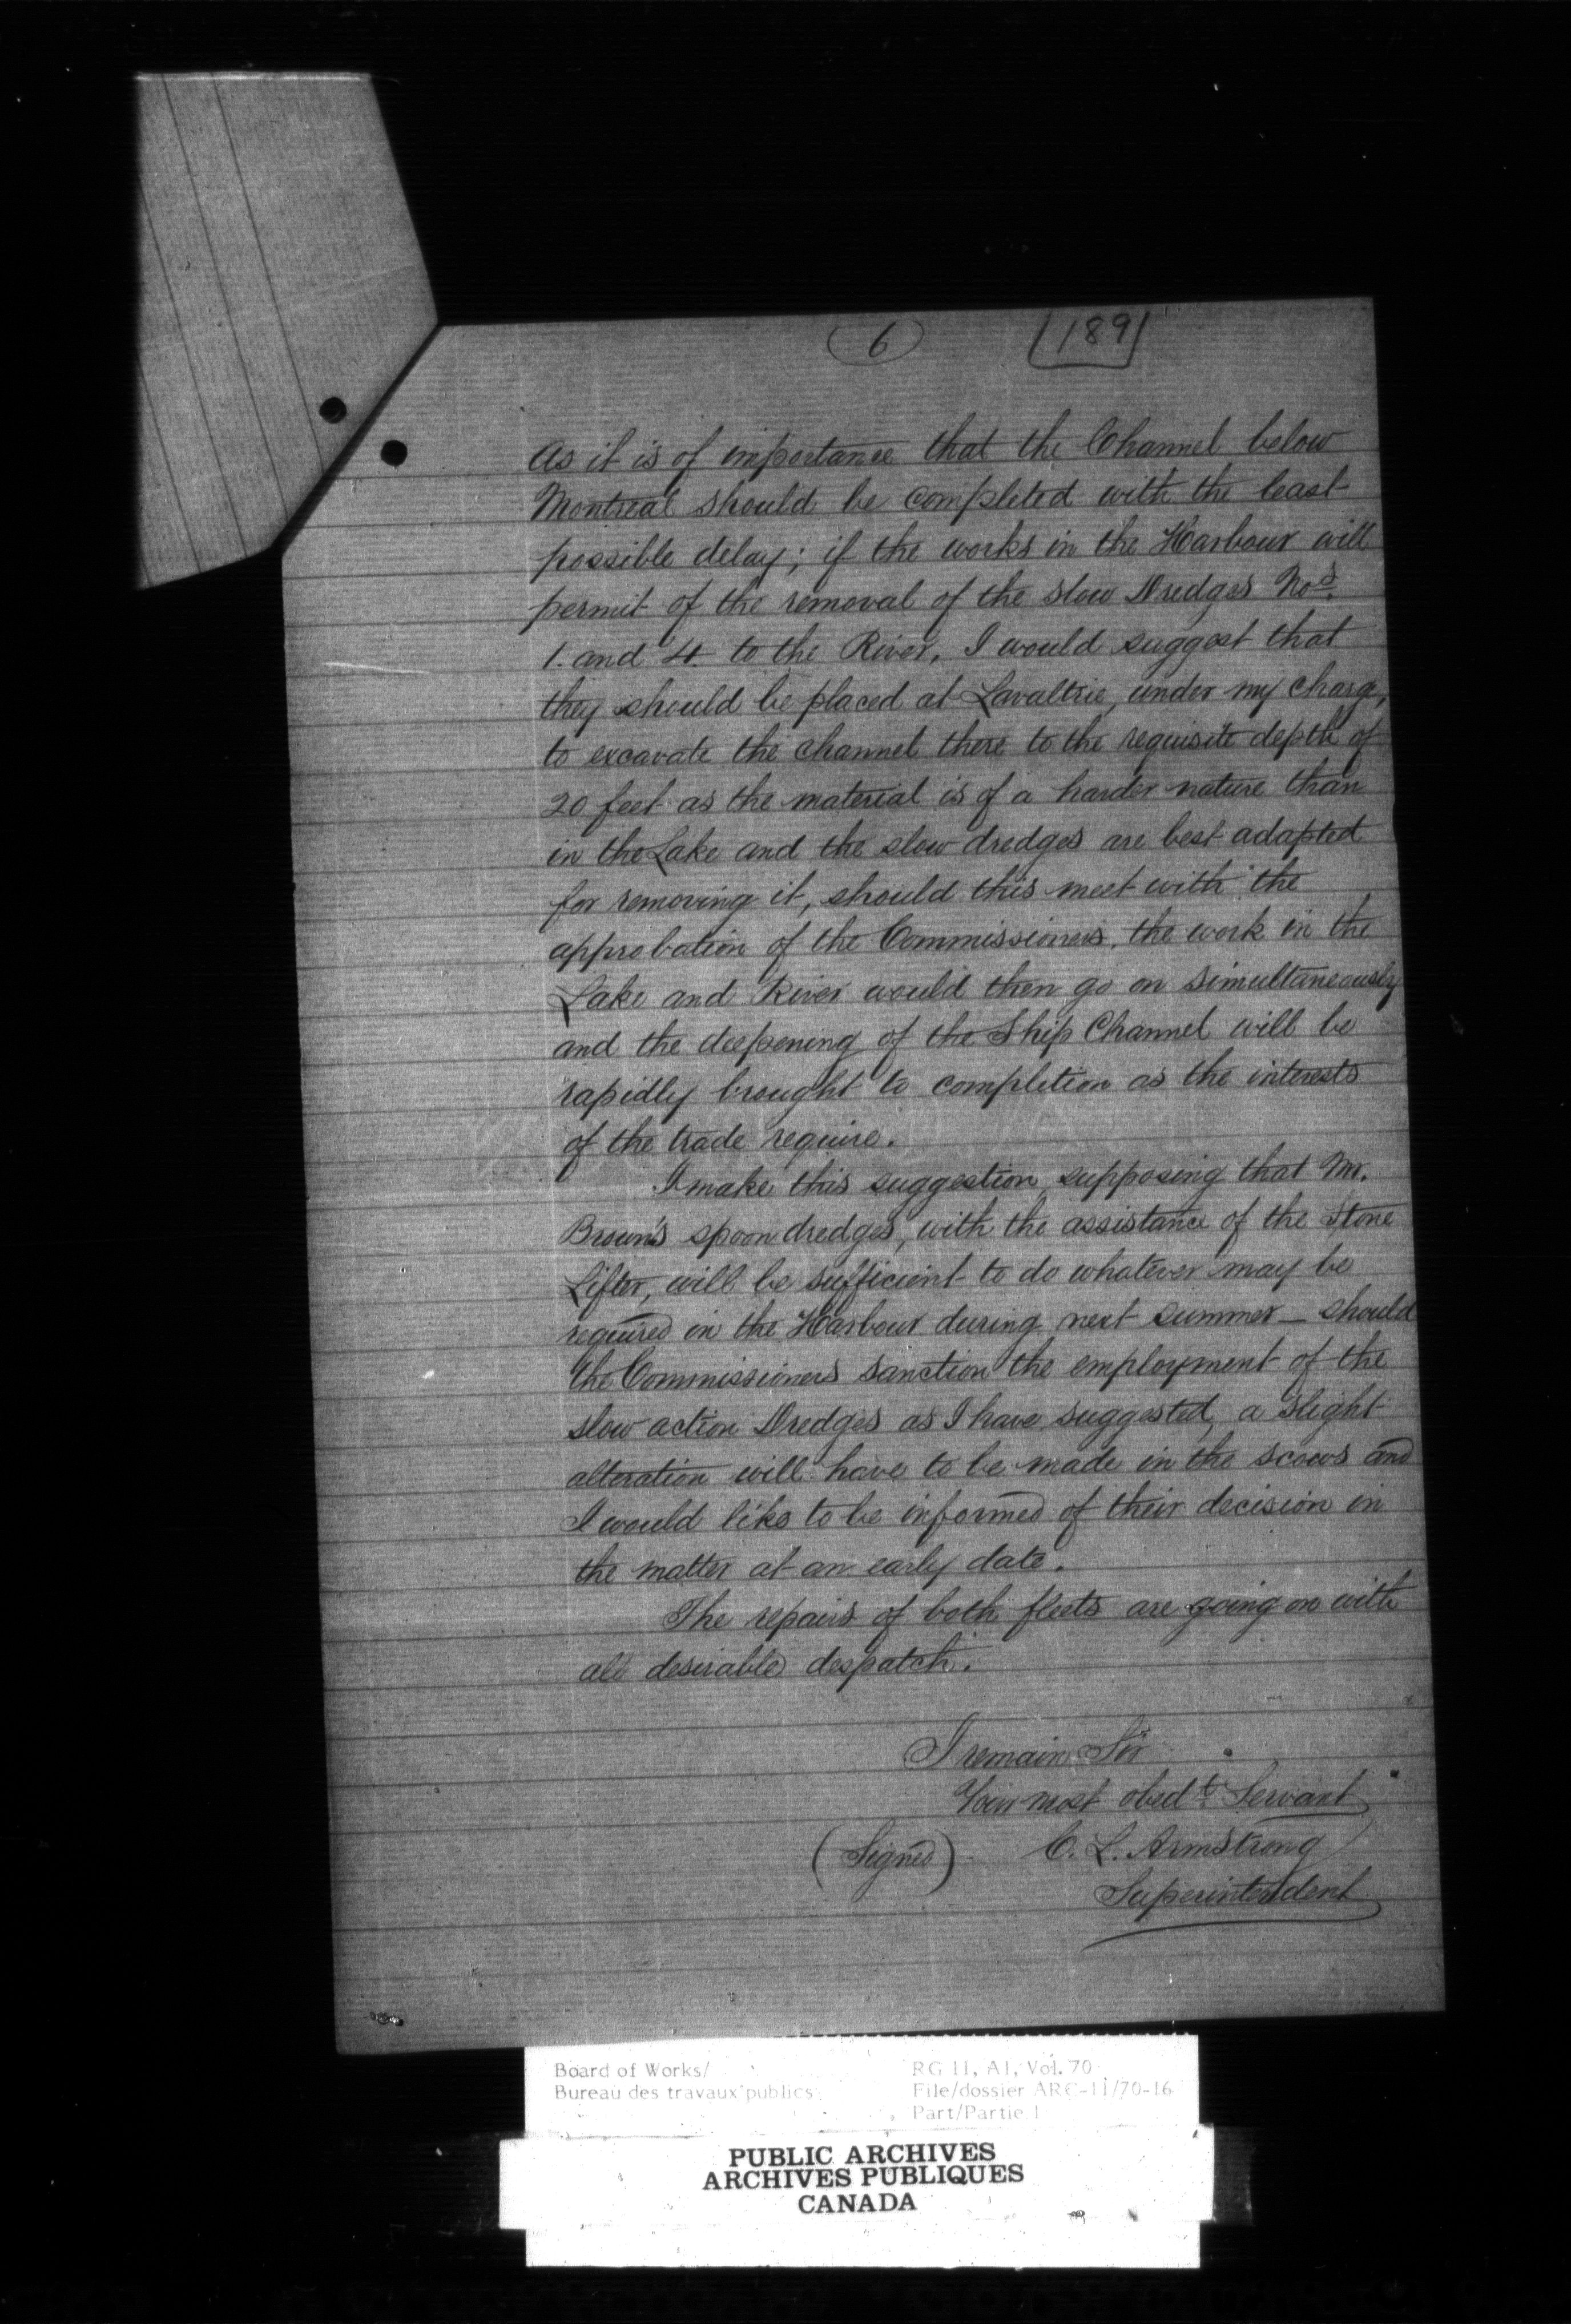 6
189
As it is of importance that the Channel below
Montreal should be completed with the least
possible delay; if the works in the Harbour will
permit of the removal of the slow Dredges Nos.
1. and 4 to the River, I would suggest that
they should be placed at Lavaltrie, under my charge,
to excavate the channel there to the requisite depth of
20 feet as the material is of a harder nature than
in the Lake and the slow dredges are best adapted
for removing it, should this meet with the
approbation of the Commissioners, the work in the
Lake and River would then go on simultaneously
and the deepening of the Ship Channel will be
rapidly brought to completion as the interests
of the trade require.
I make this suggestion supposing that Mr.
Brown's spoon dredges, with the assistance of the Stone
Lifter, will be sufficient to do whatever may be
required in the Harbour during next summer – should
the Commissioners sanction the employment of the
slow action Dredges as I have suggested, a slight
alteration will have to be made in the scows and
I would like to be informed of their decision in
the matter at an early date.
The repairs of both fleets are going on with
all desirable despatch.
I remain Sir
Your most obedt. Servant
(Signed) C. L. Armstrong
Superintendent
Board of Works/
Bureau des travaux publics
RG 11, A1, Vol. 70
File/dossier ARC-11/70-16
Part/Partie 1
PUBLIC ARCHIVES
ARCHIVES PUBLIQUES
CANADA